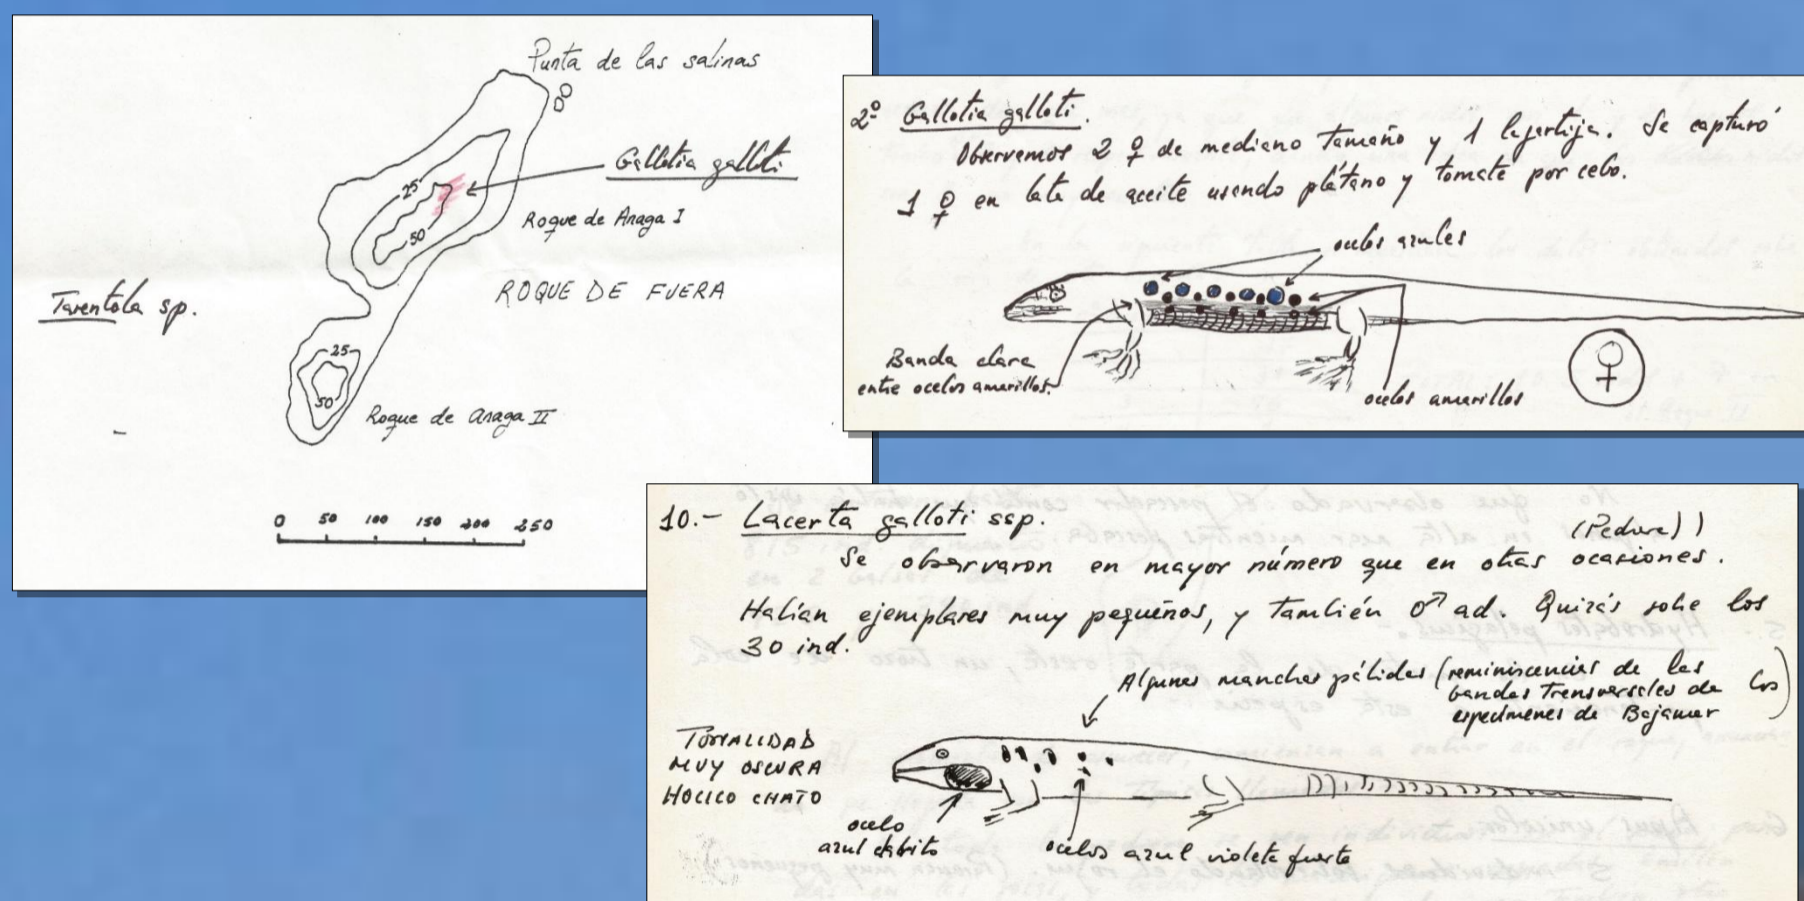 Punta de las salinas
Gallotia galloti
25
50
Roque de Anaga I
ROQUE DE FUERA
Tarentola sp.
25
50
Roque de Anaga II
0 50 100 150 200 250
2º Gallotia galloti.
Observemos 2 ♀ de mediano tamaño y 1 lagartija. Se capturó
1 ♀ en lata de aceite usando plátano y tomate por cebo.
ocelos azules
Banda clara
entre ocelos amarillos.
ocelos amarillos
♀
10.- Lacerta galloti ssp.
Se observaron en mayor número que en otras ocasiones.
Habían ejemplares muy pequeños, y también ♂ ad. Quizás sobre los
30 ind.
Algunas manchas pálidas (reminiscencias de las
bandas transversales de los)
especímenes de Bajamar
TONALIDAD
MUY OSCURA
HOCICO CHATO
ocelo
azul
ocelos azul violeta fuerte